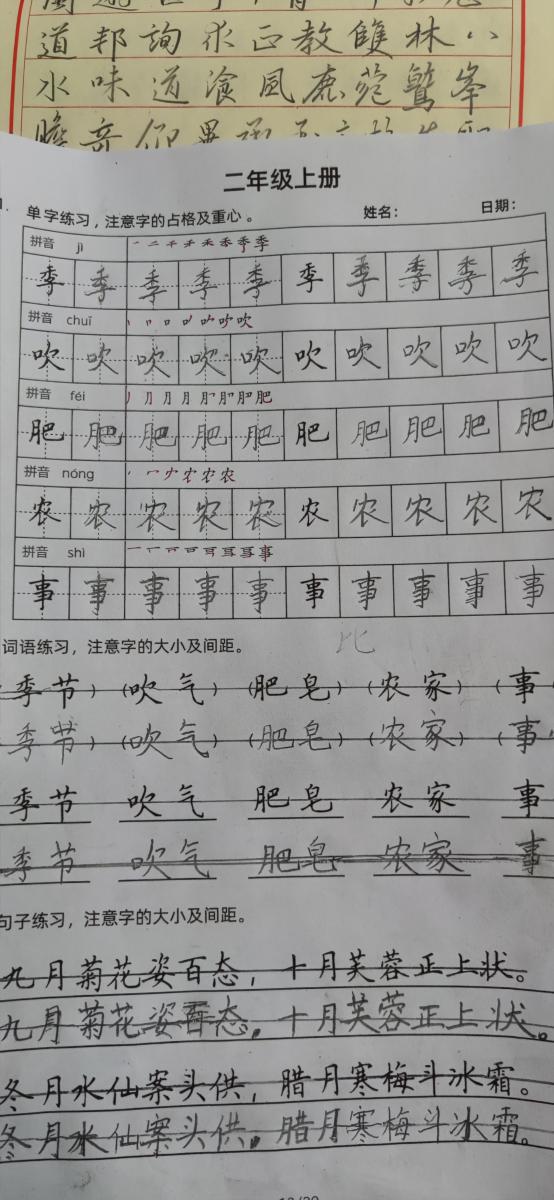 道邦詢求正教雙林八
水味道湌風鹿苑鷲峯
二年级上册
单字练习，注意字的占格及重心。 姓名： 日期：
拼音 jì 一 二 千 チ 禾 季 季 季
季 季 季 季 季 季 季 季 季 季
拼音 chuī 丨 口 口 吖 吹 吹 吹
吹 吹 吹 吹 吹 吹 吹 吹 吹 吹
拼音 féi 丿 月 月 月 肥 肥 肥 肥
肥 肥 肥 肥 肥 肥 肥 肥 肥 肥
拼音 nóng 丶 冖 ナ 农 农 农
农 农 农 农 农 农 农 农 农 农
拼音 shì 一 一 亓 亓 写 写 事 事
事 事 事 事 事 事 事 事 事 事
词语练习，注意字的大小及间距。
比
季节）（吹气）（肥皂）（农家）（事
季节）（吹气）（肥皂）（农家）（事
季节 吹气 肥皂 农家 事
季节 吹气 肥皂 农家 事
句子练习，注意字的大小及间距。
九月菊花姿百态，十月芙蓉正上状。
九月菊花姿百态，十月芙蓉正上状。
冬月水仙案头供，腊月寒梅斗冰霜。
冬月水仙案头供，腊月寒梅斗冰霜。